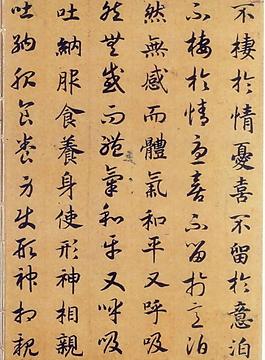 不棲於情憂喜不留於意泊
不棲於情憂喜不留於意泊
然無感而體氣和平又呼吸
然無感而體氣和平又呼吸
吐納服食養身使形神相親
吐納服食養身使形神相親